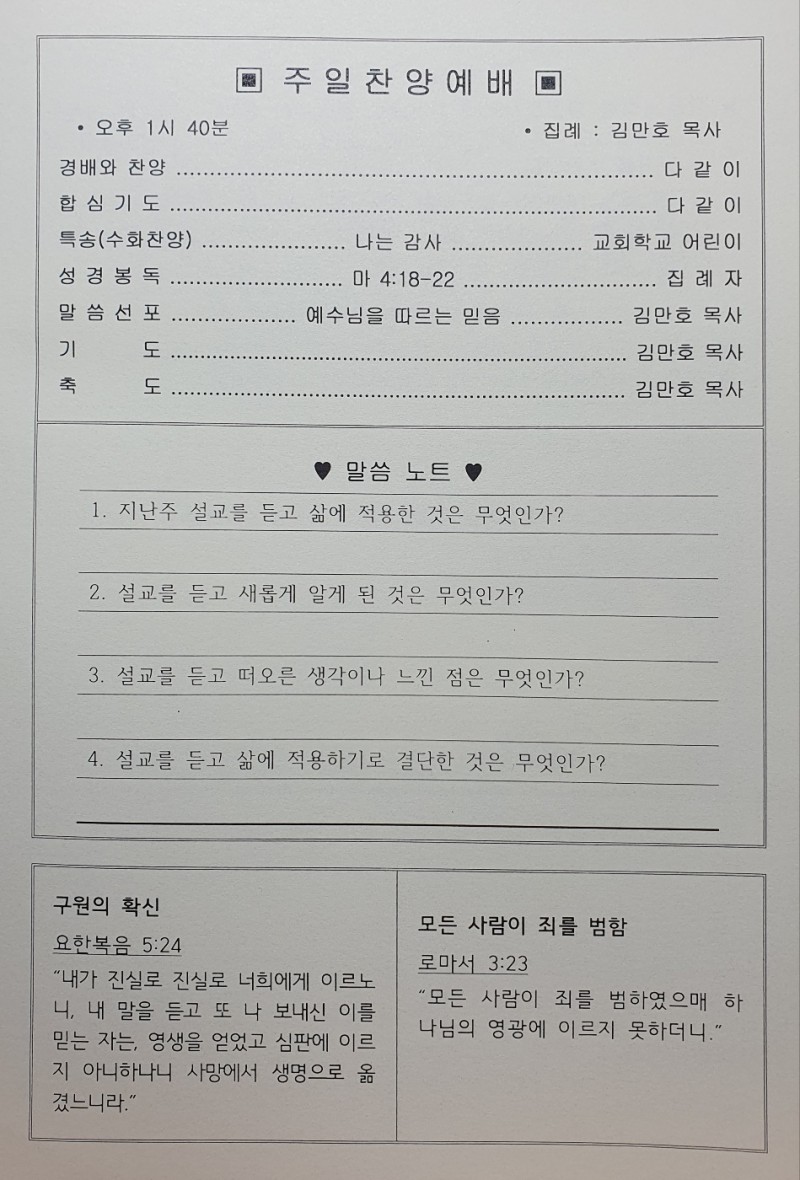 ▣ 주일찬양예배 ▣
• 오후 1시 40분 • 집례 : 김만호 목사
경배와 찬양 ........................................ 다 같 이
합 심 기 도 ........................................ 다 같 이
특송(수화찬양) .................... 나는 감사 .................... 교회학교 어린이
성 경 봉 독 .................... 마 4:18-22 .................... 집 례 자
말 씀 선 포 .................... 예수님을 따르는 믿음 .................... 김만호 목사
기 도 ........................................ 김만호 목사
축 도 ........................................ 김만호 목사
♥ 말씀 노트 ♥
1. 지난주 설교를 듣고 삶에 적용한 것은 무엇인가?
2. 설교를 듣고 새롭게 알게 된 것은 무엇인가?
3. 설교를 듣고 떠오른 생각이나 느낀 점은 무엇인가?
4. 설교를 듣고 삶에 적용하기로 결단한 것은 무엇인가?
구원의 확신
요한복음 5:24
“내가 진실로 진실로 너희에게 이르노
니, 내 말을 듣고 또 나 보내신 이를
믿는 자는, 영생을 얻었고 심판에 이르
지 아니하나니 사망에서 생명으로 옮
겼느니라.”
모든 사람이 죄를 범함
로마서 3:23
“모든 사람이 죄를 범하였으매 하
나님의 영광에 이르지 못하더니.”